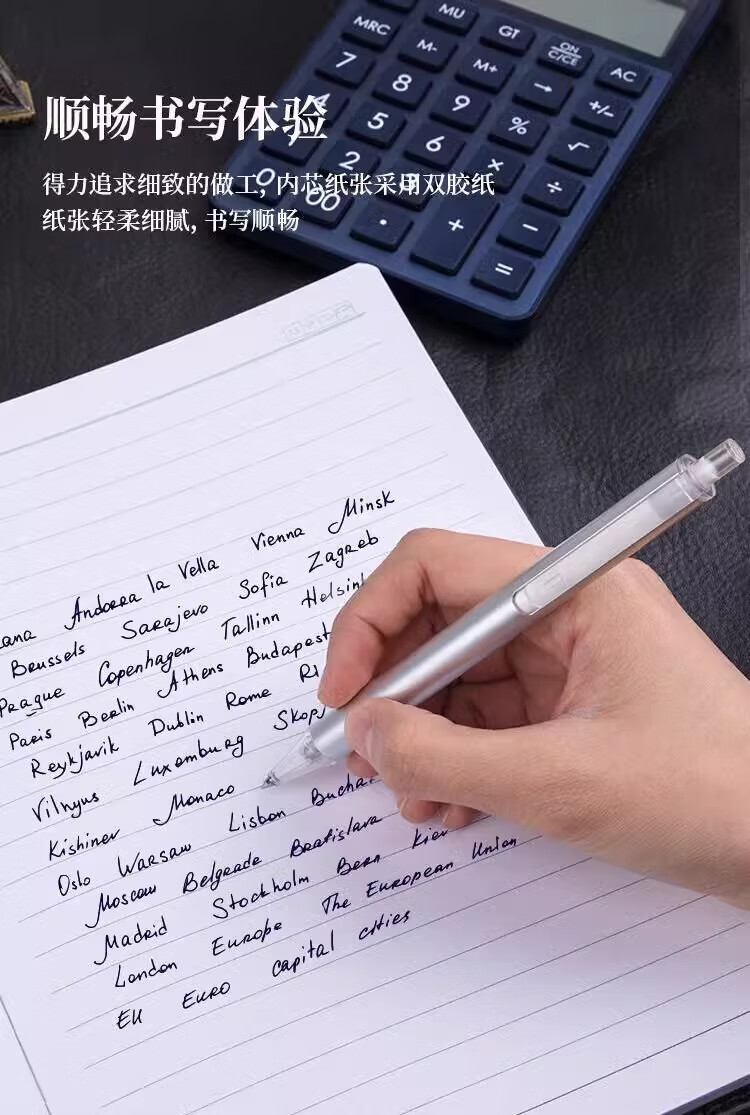 MU
GT
ON
C/CE
AC
MRC
M-
M+
→
+/-
7
8
9
%
√
5
6
×
÷
2
0
00
·
+
−
=
顺畅书写体验
得力追求细致的做工, 内芯纸张采用双胶纸
纸张轻柔细腻, 书写顺畅
Andorra la Vella Vienna Minsk
Brussels Sarajevo Sofia Zagreb
Prague Copenhagen Tallinn
Paris Berlin Athens Budapest
Reykjavik Dublin Rome
Vilnyus Luxemburg
Kishinev Monaco
Oslo Warsaw Lisbon
Moscow Belgrade Bratislava
Madrid Stockholm Bern Kiev
London Europe The European Union
EU Euro capital cities